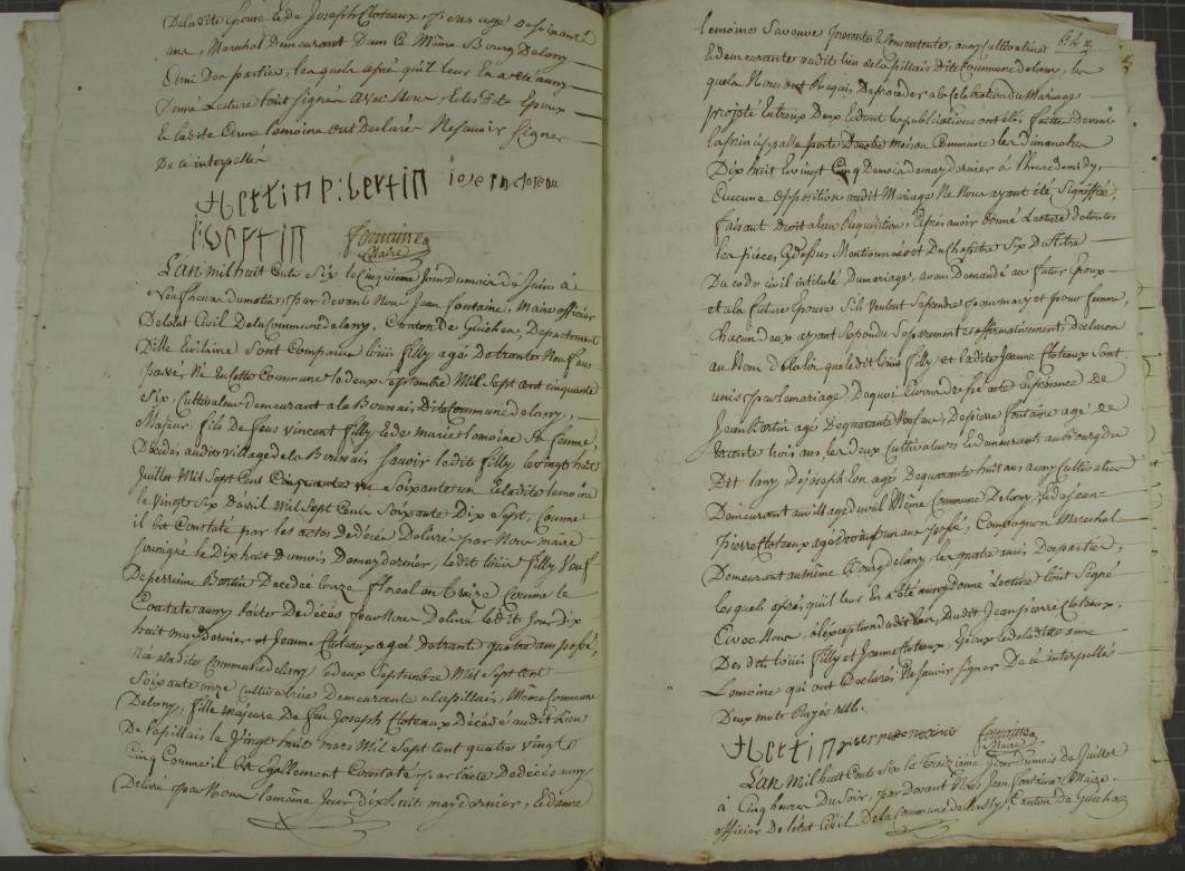 De la dite Epouse et de Joseph Cloteaux, pere agé de soixante
ans, Marechal Demeurant Dans ce Même Bourg De lassy
Ami Des parties, lesquels aprés qu'il leur En a eté aussy
Donné Lecture l'ont signée avec Nous, Les dits Epoux
Et la dite Anne lemoine ont Declarés Ne savoir signer
De ce interpellés
Bertin p: bertin joseph cloteau
Bertin fontaine
Maire
L'an mil huit Cents Six le Cinquieme Jour du mois de Juin à
Neuf heures du matin, par devant Nous Jean fontaine, Maire officier
De l'etat Civil De la Commune de lassy, Canton De Guichen, Departement
D'ille Et vilaine Sont Comparus louis filly agé de trante Neuf ans
passés Né En cette Commune le deux septembre Mil Sept cent cinquante
six, Cultivateur demeurant a la Bounais Dite Commune de lassy,
Majeur, fils de feus vincent filly et de marie lemoine sa femme,
Décédés audit village de la Bounais savoir ledit filly le vingt huit
Juillet Mil Sept Cent soixante un Et la dite lemoine
le Vingt Six D'avril Mil Sept Cent Soixante Dix Sept, Comme
il Est Constaté par les actes de décés Delivré par Nous maire
soussigné le Dix huit du mois De may dernier, ledit louis filly veuf
De perrinne Bertin Decedée le onze floreal an treize Comme le
Constate aussy l'acte De décés par Nous Delivré le dit Jour dix
huit may Dernier et Jeanne Cloteaux agée de trante quatre ans passés,
Née en la dite Commune de lassy le deux Septembre Mil Sept cent
Soixante onze cultivatrice Demeurante a la pillais, Même Commune
De lassy, fille Majeure De feu Joseph Cloteaux Décédé audit Lieu
De la pillais le Vingt huit mars Mil Sept cent quatre vingt
Cinq Comme il Est Egallement Constaté par l'acte De décés aussy
Delivré par Nous le même Jour dix huit may dernier, et d'anne
lemoine sa veuve presente Et Consentante, aussy Cultivatrice
Et demeurante audit lieu de la pillais Dite Commune de lassy, les
quels Nous ont Requis De proceder a la Celebration du Mariage
projeté Entreux Deux et dont les publications ont étés faittes devant
la principalle porte De notre maison Commune les Dimanches
Dix huit Et vingt Cinq Du mois de may dernier à l'heure de midy,
Aucune opposition audit Mariage Ne Nous ayant été Signiffiée,
faisant Droit a leur Requisition, Aprés avoir Donné Lecture de toutes
les piéces Cy dessus Mentionnées et Du Chapitre Six Du titre
Du code civil intitulé Du mariage, avons Demandé au futur Epoux
et a la future Epouse S'ils veulent se prendre pour mary et pour femme,
Chacun d'eux ayant Repondu Separement et affirmativement, declarons
au Nom de la loi que ledit louis filly et la dite Jeanne Cloteaux sont
unis par le mariage, De quoi avons dressé acte En presence de
Jean Bertin agé De quarante Neuf ans, De pierre fontaine agé de
trante trois ans, les deux Cultivateurs Et demeurant au Bourg du
Dit lassy De joseph lon agé De quarante huit ans aussy Cultivateur
Demeurant au village Même Commune De lassy, Et de jean
pierre Cloteaux agé de vingt un ans passé, Compagnon Marechal
Demeurant au même Bourg de lassy, les quatre amis Des parties,
les quels aprés qu'il leur En a été aussy donné Lecture l'ont Signé
Avec Nous, à l'exception dudit lon, Dudit Jean pierre Cloteaux,
Des dits louis filly et Jeanne Cloteaux Epoux et de la dite anne
Lemoine qui ont Declarés Ne savoir signer De ce interpellés
Deux mots Rayés nuls.
Bertin pierre fontaine fontaine
Maire
L'an Mil huit Cents Six le treizieme Jour du mois de Juillet
à Cinq heures Du Soir, par devant Nous Jean fontaine Maire
officier De l'état Civil De la Commune de Lassy, Canton De Guichen